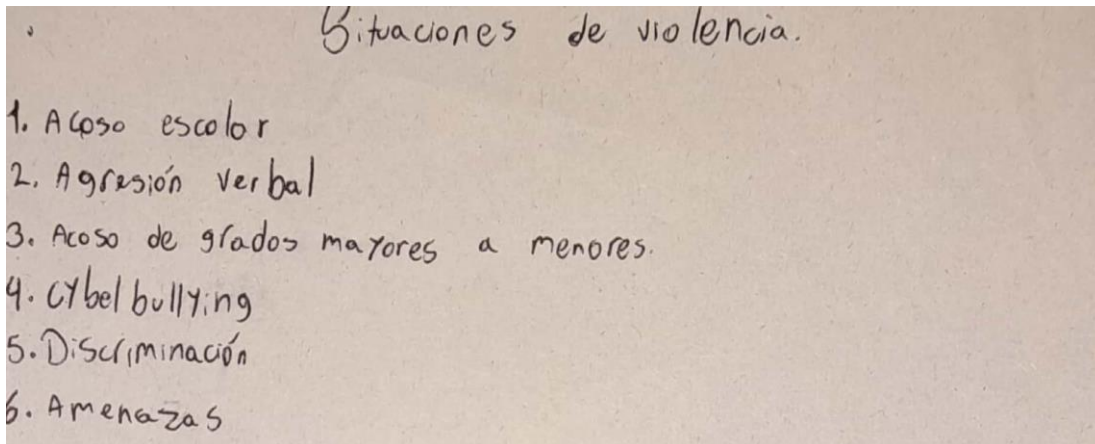 Situaciones de violencia.
1. Acoso escolar
2. Agresión verbal
3. Acoso de grados mayores a menores.
4. Cybelbullying
5. Discriminación
6. Amenazas